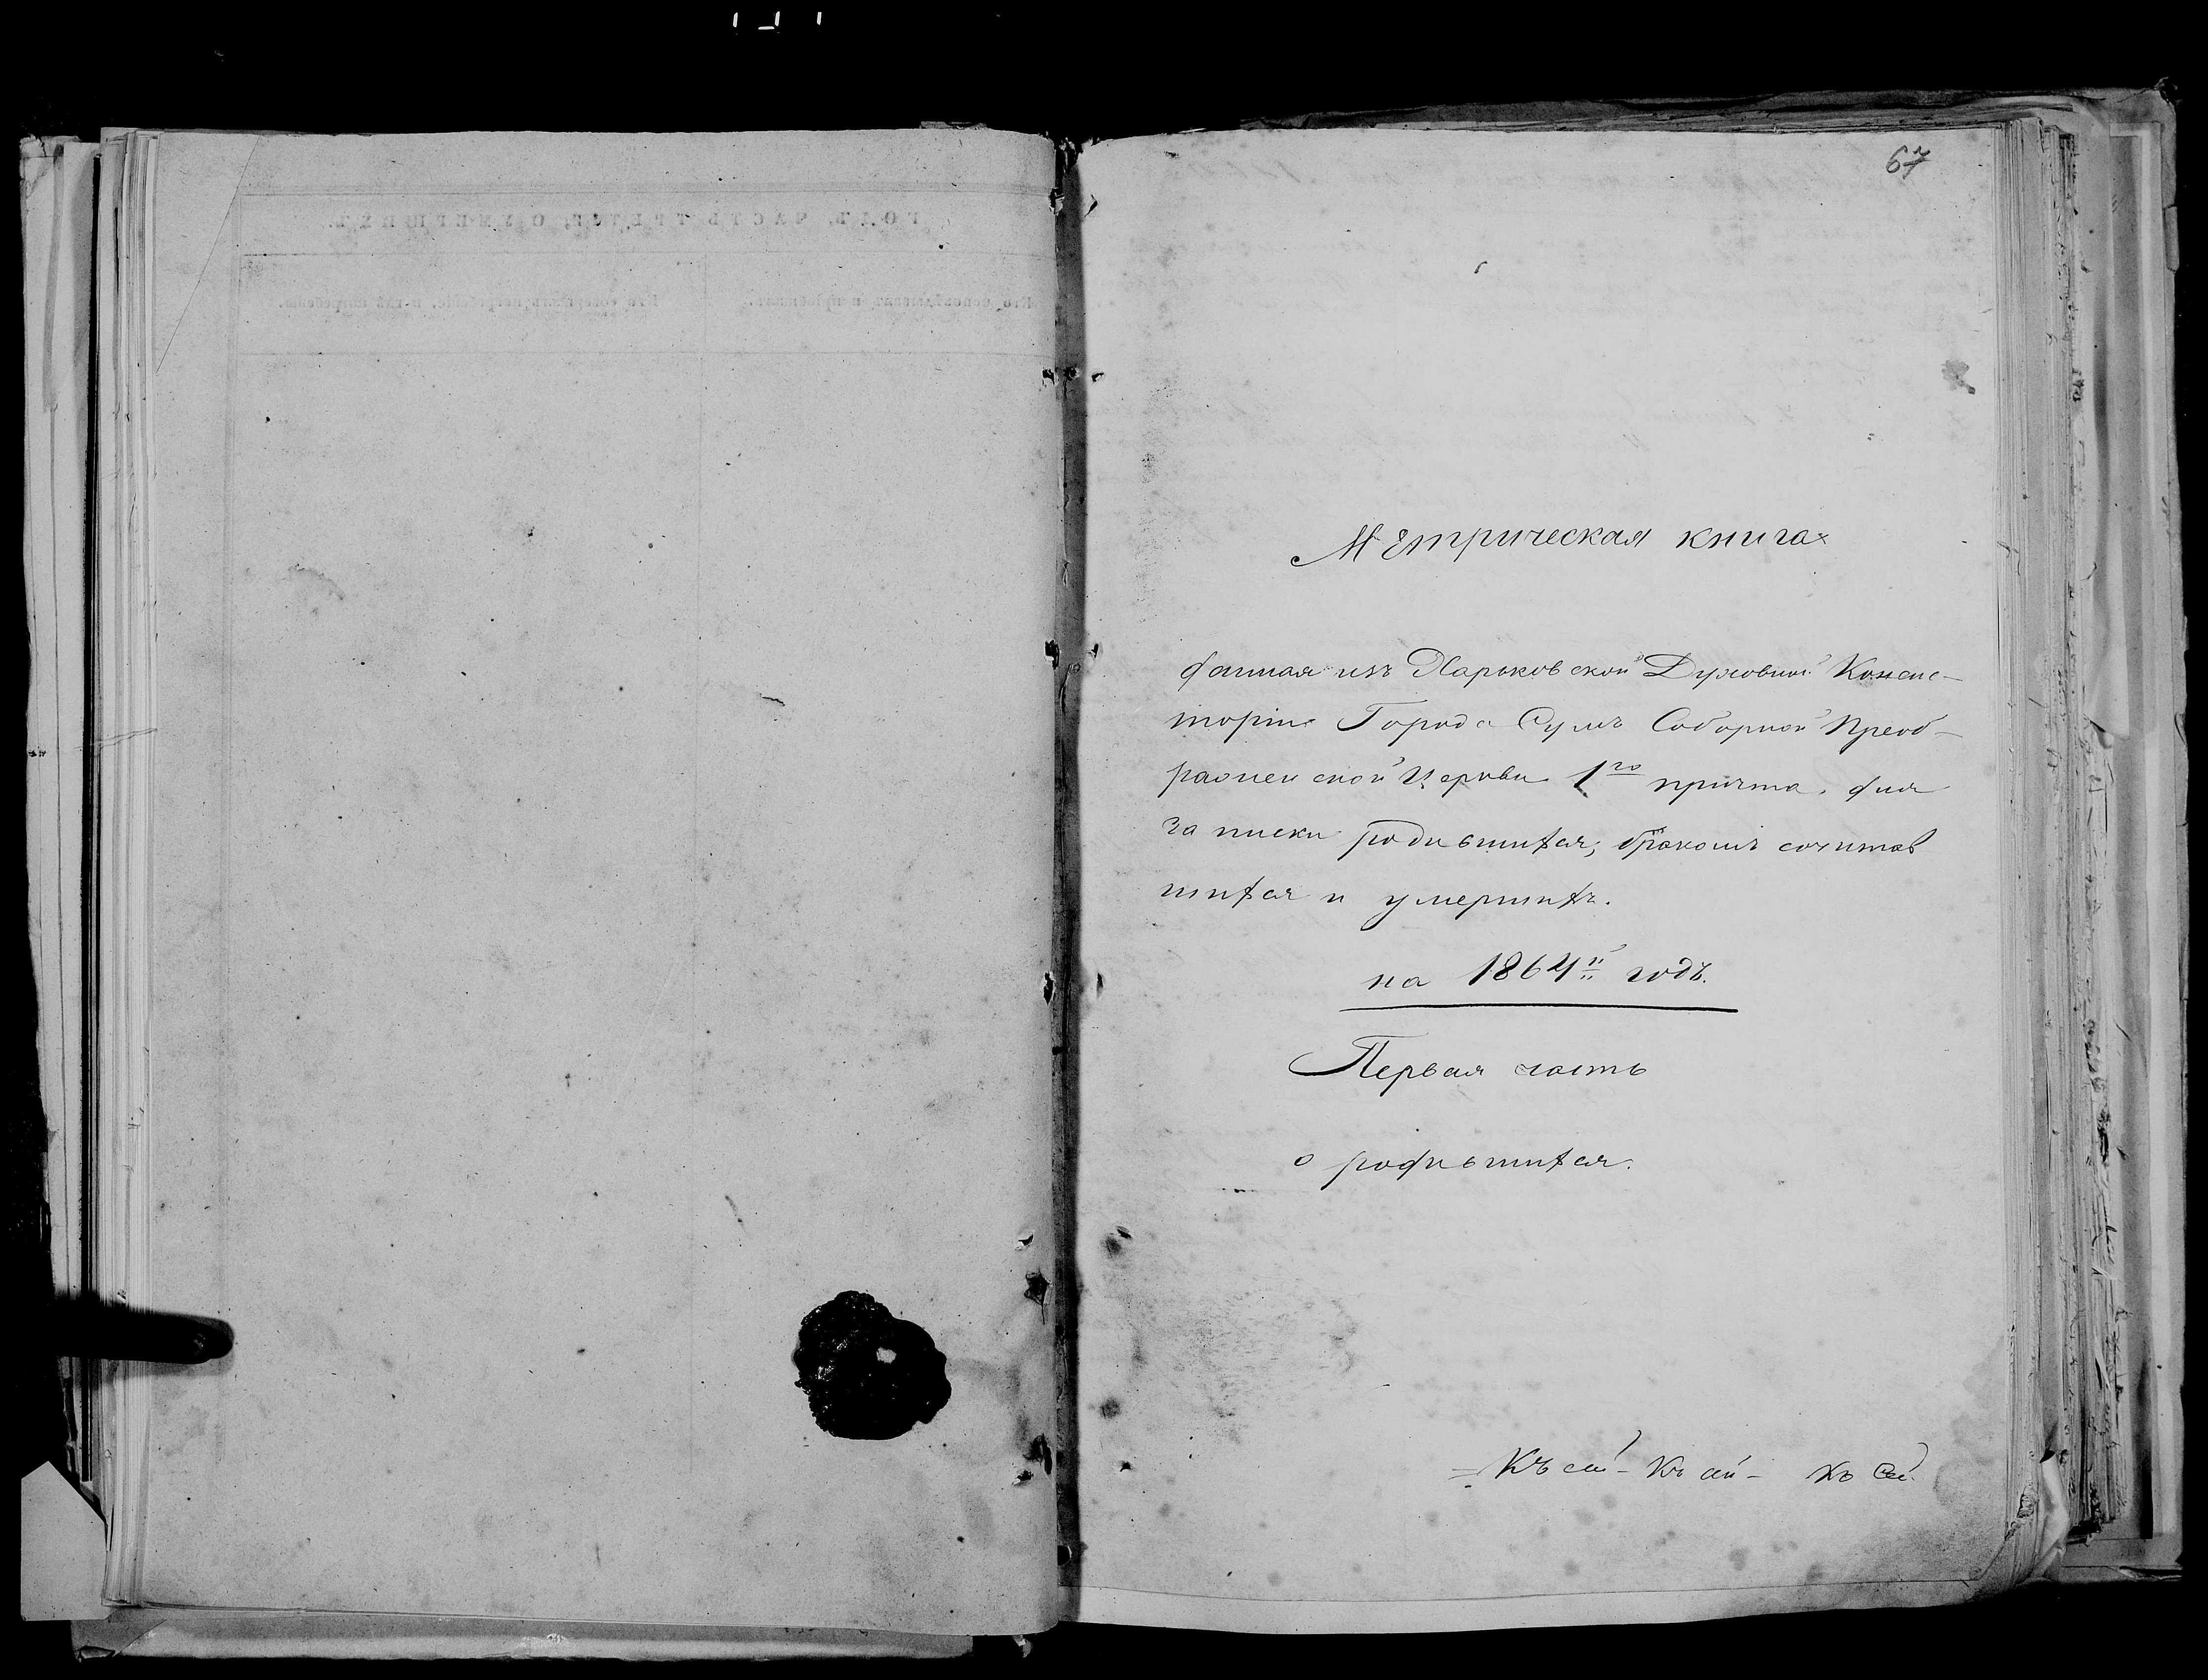 67
Метрическая книга
данная изъ Харьковской Духовной Консис-
торіи Города Сумъ Соборной Преоб-
раженской Церкви 1го причта, для
записки родившихся, бракомъ сочетав
шихся и умершихъ.
на 1864й годъ.
Первая часть
о родившихся.